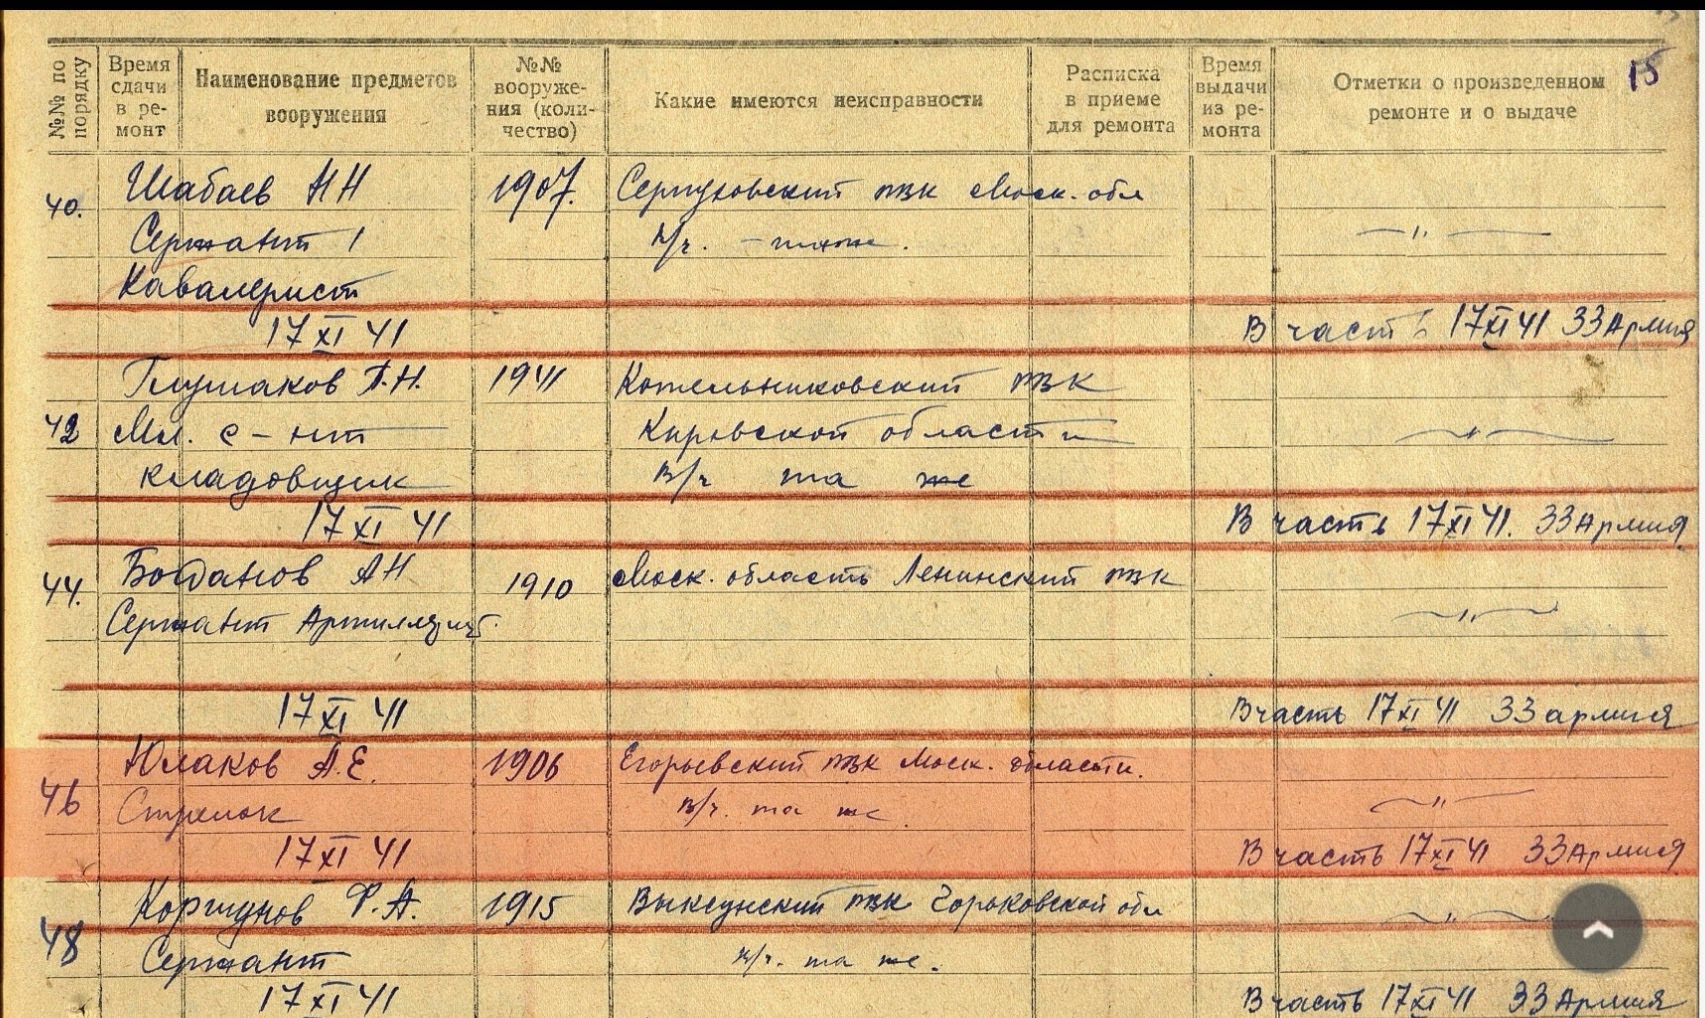 15
№№ по порядку
Время сдачи в ре- монт
Наименование предметов вооружения
№№ вооруже- ния (коли- чество)
Какие имеются неисправности
Расписка в приеме для ремонта
Время выдачи из ре- монта
Отметки о произведенном ремонте и о выдаче
40. Шабаев НН 1907. Серпуховский РВК Моск. обл
Сержант В/ч. - таже. —„—
Кавалерист
17 XI 41 В часть 17 XI 41 33 Армия
А.Н. 1941 Котельниковский РВК
42 Мл. с-нт Кировской области —„—
кладовщик В/ч та же
17 XI 41 В часть 17 XI 41. 33 Армия
44. Богданов АН 1910 Моск. область Ленинский РВК
Сержант —„—
17 XI 41 В часть 17 XI 41 33 армия
46 Юлаков А.Е. 1906 Егорьевский РВК Моск. области.
Стрелок В/ч. та же —„—
17 XI 41 В часть 17 XI 41 33 Армия
48 Коршунов Ф.А. 1915 Выксунский РВК Горьковской обл —„—
Сержант В/ч. та же.
17 XI 41 В часть 17 XI 41 33 Армия